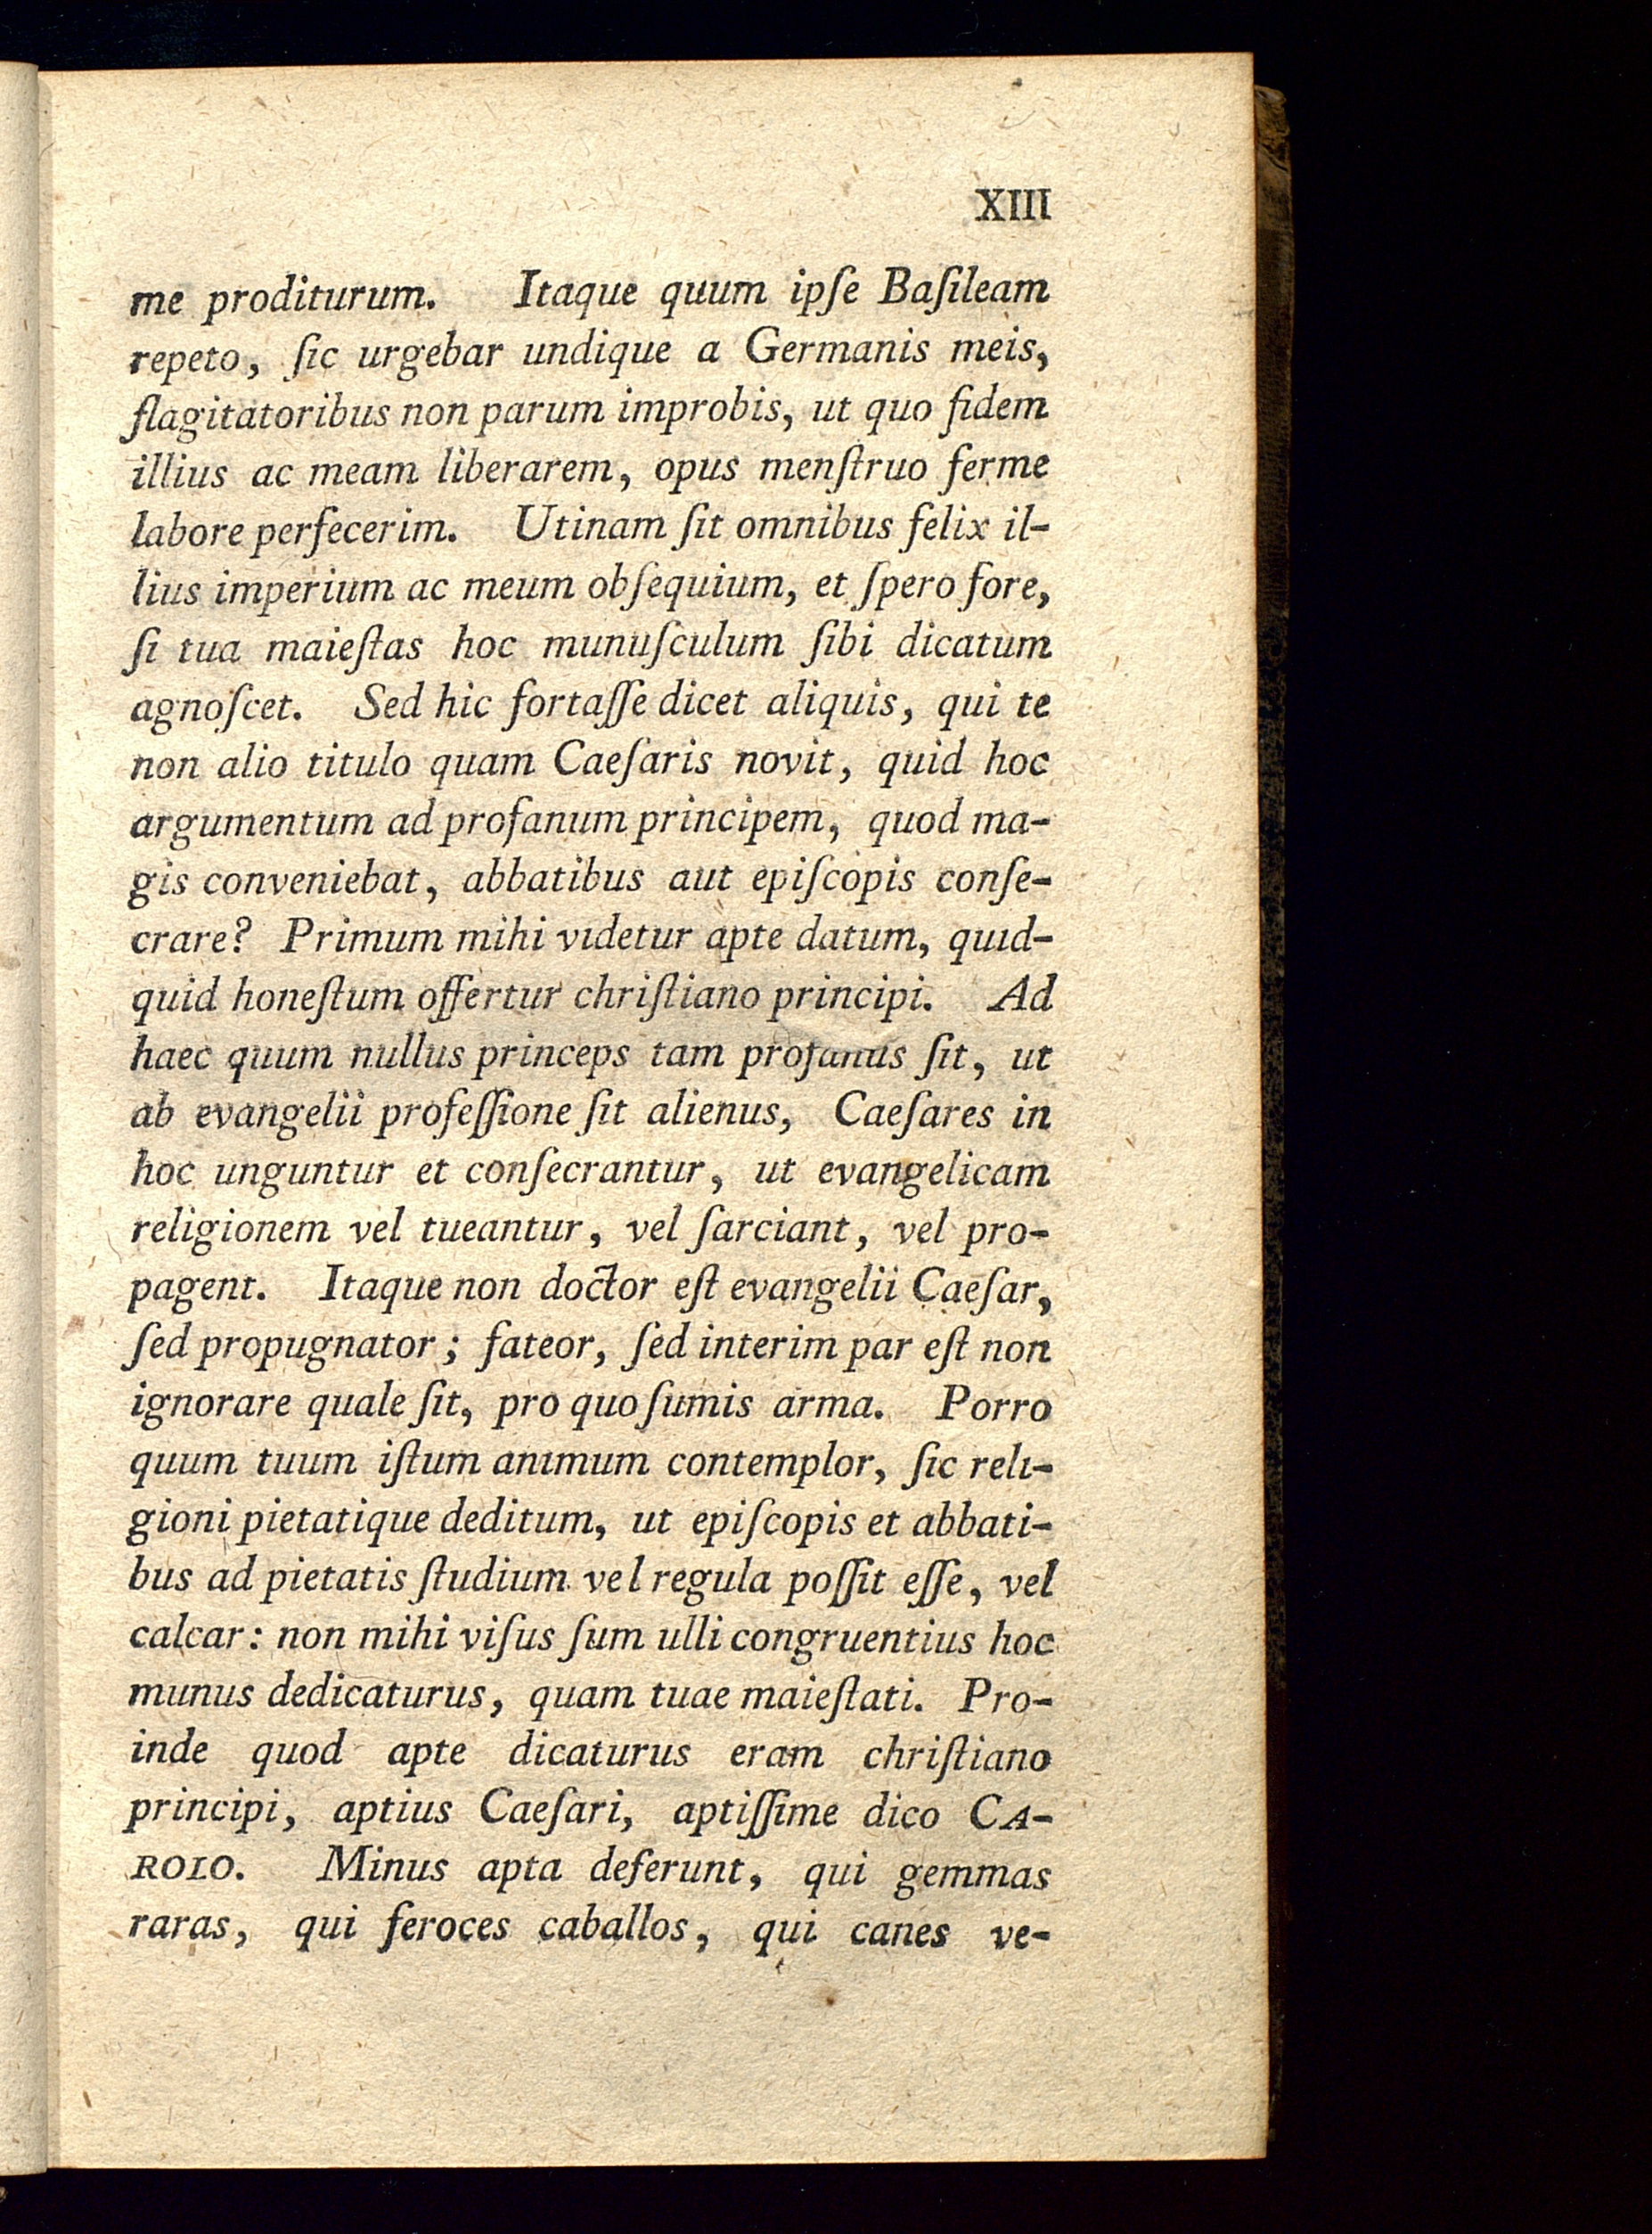 XIII
me proditurum. Itaque quum ipſe Baſileam
repeto, ſic urgebar undique a Germanis meis,
flagitatoribus non parum improbis, ut quo fidem
illius ac meam liberarem, opus menſtruo ferme
labore perfecerim. Utinam ſit omnibus felix il-
lius imperium ac meum obſequium, et ſpero fore,
ſi tua maieſtas hoc munuſculum ſibi dicatum
agnoſcet. Sed hic fortaſſe dicet aliquis, qui te
non alio titulo quam Caeſaris novit, quid hoc
argumentum ad profanum principem, quod ma-
gis conveniebat, abbatibus aut epiſcopis conſe-
crare? Primum mihi videtur apte datum, quid-
quid honeſtum offertur chriſtiano principi. Ad
haec quum nullus princeps tam profanus ſit, ut
ab evangelii profeſſione ſit alienus, Caeſares in
hoc unguntur et conſecrantur, ut evangelicam
religionem vel tueantur, vel ſarciant, vel pro-
pagent. Itaque non doctor eſt evangelii Caeſar,
ſed propugnator; fateor, ſed interim par eſt non
ignorare quale ſit, pro quo ſumis arma. Porro
quum tuum iſtum animum contemplor, ſic reli-
gioni pietatique deditum, ut epiſcopis et abbati-
bus ad pietatis ſtudium vel regula poſſit eſſe, vel
calcar: non mihi viſus ſum ulli congruentius hoc
munus dedicaturus, quam tuae maieſtati. Pro-
inde quod apte dicaturus eram chriſtiano
principi, aptius Caeſari, aptiſſime dico CA-
ROLO. Minus apta deferunt, qui gemmas
raras, qui feroces caballos, qui canes ve-